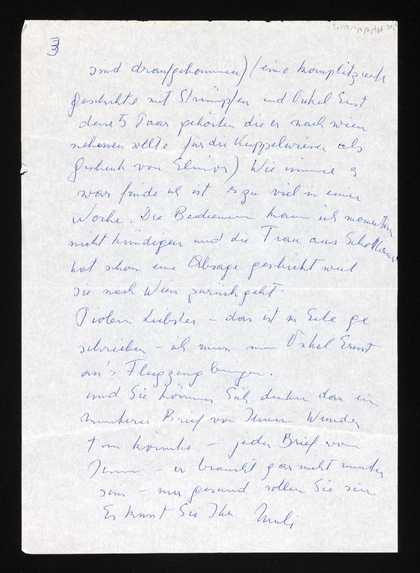 3
sind draufgekommen) (eine komplizierte
Geschichte mit Strümpfen und Onkel Ernst
dem 5 Paar gehörten die er nach Wien
nehmen sollte für die Kuppelwieser als
Geschenk von Elinor) Wie immer es
war finde ich ist es zu viel in einer
Woche. Die Bedienerin kann ich momentan
nicht kündigen und die Frau aus Schottland
hat schon eine Absage geschickt weil
sie nach Wien zurückgeht.
Liebster – das ist in Eile ge
schrieben – ich muss nun Onkel Ernst
an's Flugzeug bringen.
und Sie können Sich denken das ein
munterer Brief von Ihnen Wunder
tun könnte – jeder Brief von
Ihnen – er braucht gar nicht munter
sein – nur gesund sollen Sie sein
Es küsst Sie Ihre